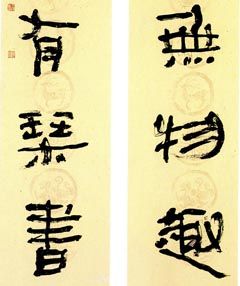 無物趣
有琴書